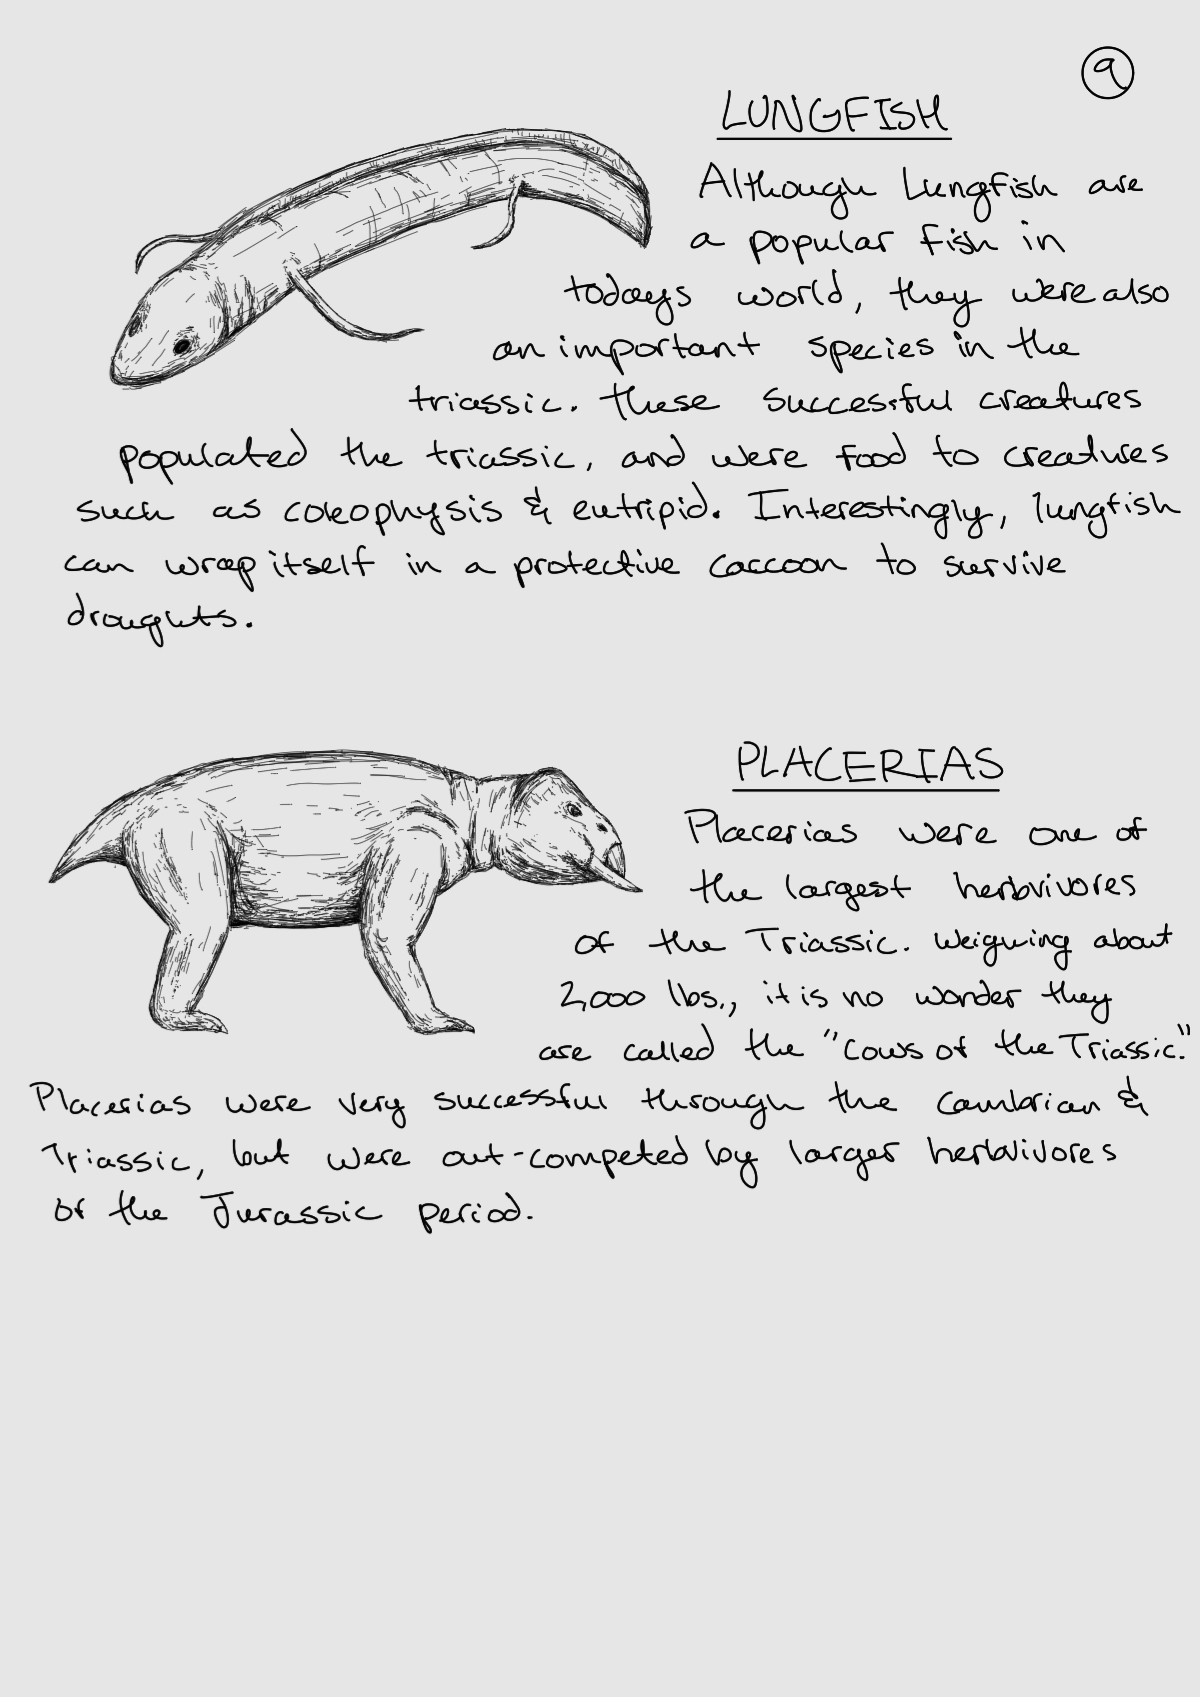 9
LUNGFISH
Although Lungfish are
a popular fish in
todays world, they were also
an important species in the
triassic. these successful creatures
populated the triassic, and were food to creatures
such as coleophysis & eutripid. Interestingly, lungfish
can wrap itself in a protective caccoon to survive
droughts.
PLACERIAS
Placerias were one of
the largest herbvivores
of the Triassic. Weighing about
2,000 lbs., it is no wonder they
are called the "Cows of the Triassic."
Placerias were very successful through the Cambrian &
Triassic, but were out-competed by larger herbvivores
of the Jurassic period.